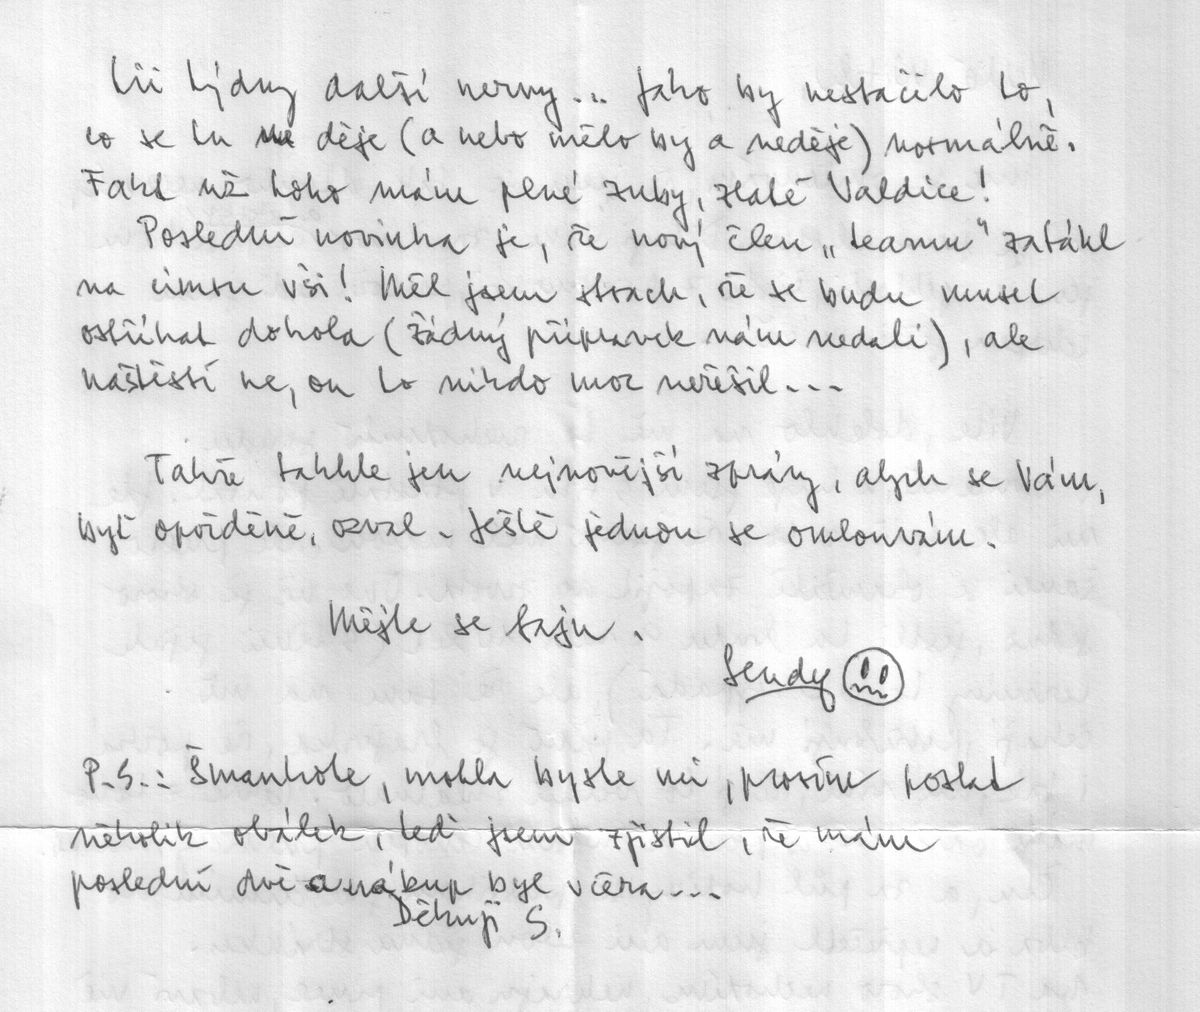 tři týdny další nervy... Jako by nestačilo to,
co se tu děje (a nebo mělo by a neděje) normálně.
Fakt už toho mám plné zuby, zlaté Valdice!
Poslední novinka je, že nový člen „teamu" zatáhl
na cimru vši! Měl jsem strach, že se budu muset
ostříhat dohola (žádný přípravek nám nedali), ale
naštěstí ne, on to nikdo moc neřešil...
Takže takhle jen nejnovější zprávy, abych se Vám,
byť opožděně, ozval. Ještě jednou se omlouvám.
Mějte se fajn.
Sendy
P.S.: Šmankote, mohla byste mi, prosím poslat
několik obálek, teď jsem zjistil, že mám
poslední dvě a nákup byl včera...
Děkuji S.